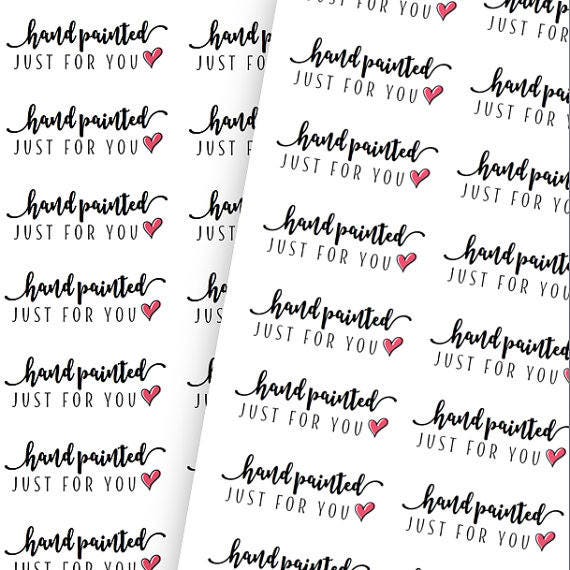 hand painted
JUST FOR YOU
hand painted
JUST FOR YOU
hand painted
JUST FOR YOU
hand painted
JUST FOR YOU
hand painted
JUST FOR YOU
hand painted
JUST FOR YOU
hand painted
JUST FOR YOU
hand
JUST
hand
JUST
JUST
JUST FOR YOU
hand painted
JUST FOR YOU
hand painted
JUST FOR YOU
hand painted
JUST FOR YOU
hand painted
JUST FOR YOU
hand painted
JUST FOR YOU
hand painted
JUST FOR YOU
hand painted
hand
JUST FOR
hand
JUST FOR
hand
JUST FOR
hand
JUST FOR YOU
hand painted
JUST FOR YOU
hand painted
JUST FOR YOU
hand painted
JUST FOR YOU